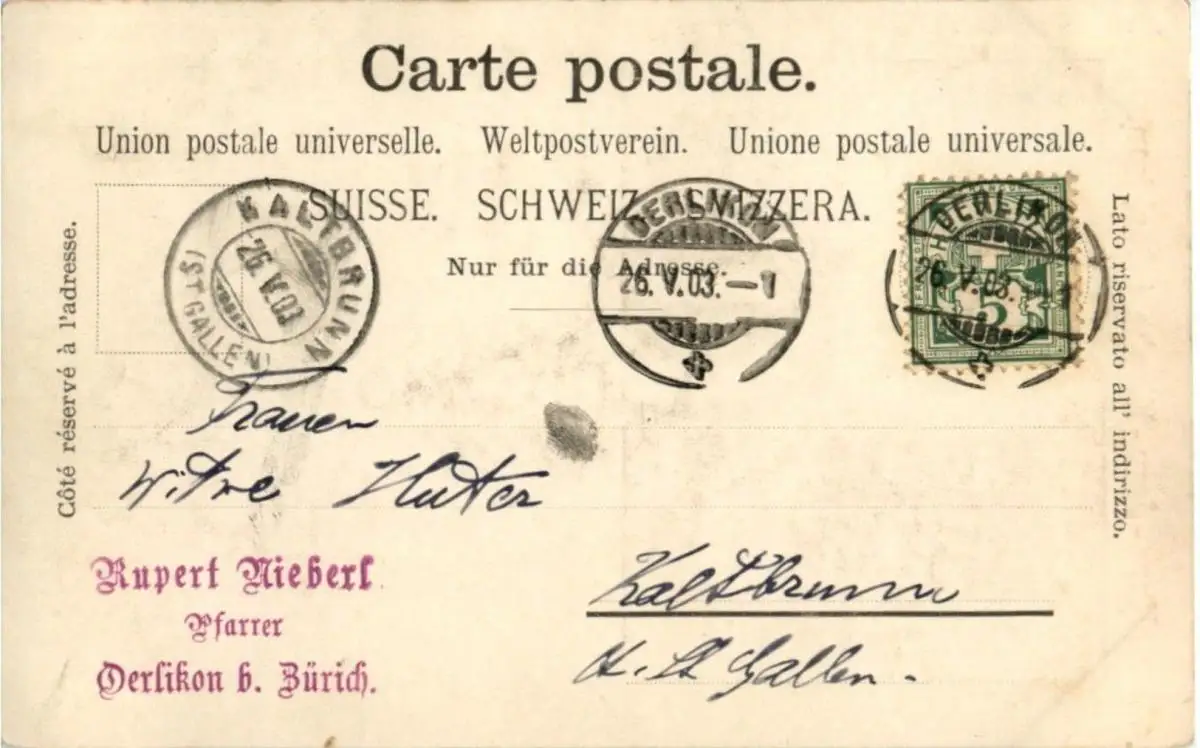 Carte postale.
Union postale universelle. Weltpostverein. Unione postale universale.
SUISSE. SCHWEIZ. SVIZZERA.
Nur für die Adresse.
Côté réservé à l'adresse.
Lato riservato all' indirizzo.
KALTBRUNN
26.V.03
(ST. GALLEN)
OERLIKON
26.V.03.—1
OERLIKON
26.V.03.—1
HELVETIA
5
Frauen
Witwe Huter
Kaltbrunn
Kt. St Gallen.
Rupert Nieberl
Pfarrer
Oerlikon b. Zürich.